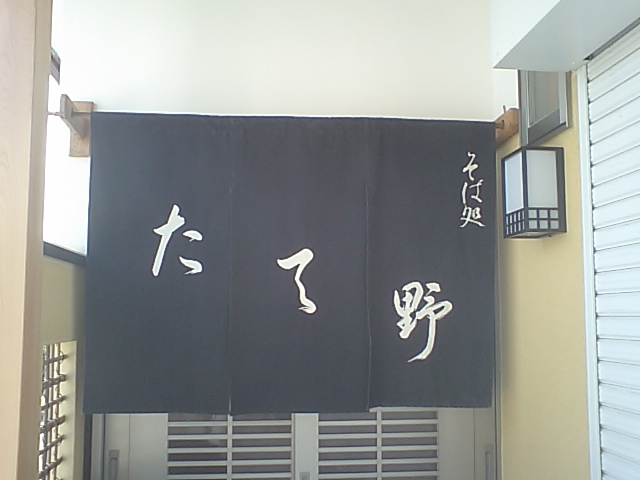 そば処
たて野